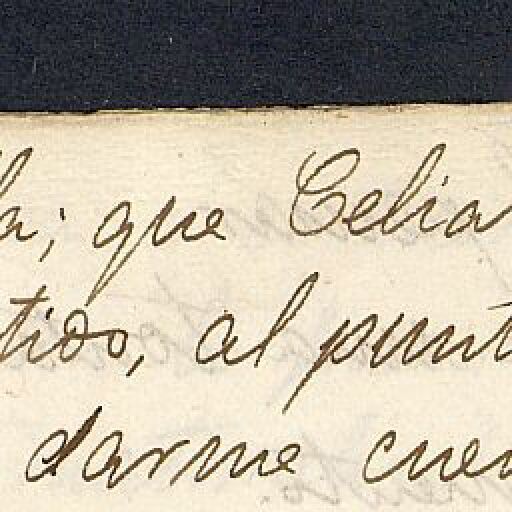 la; que Celia
tido, al punt
darme cuen